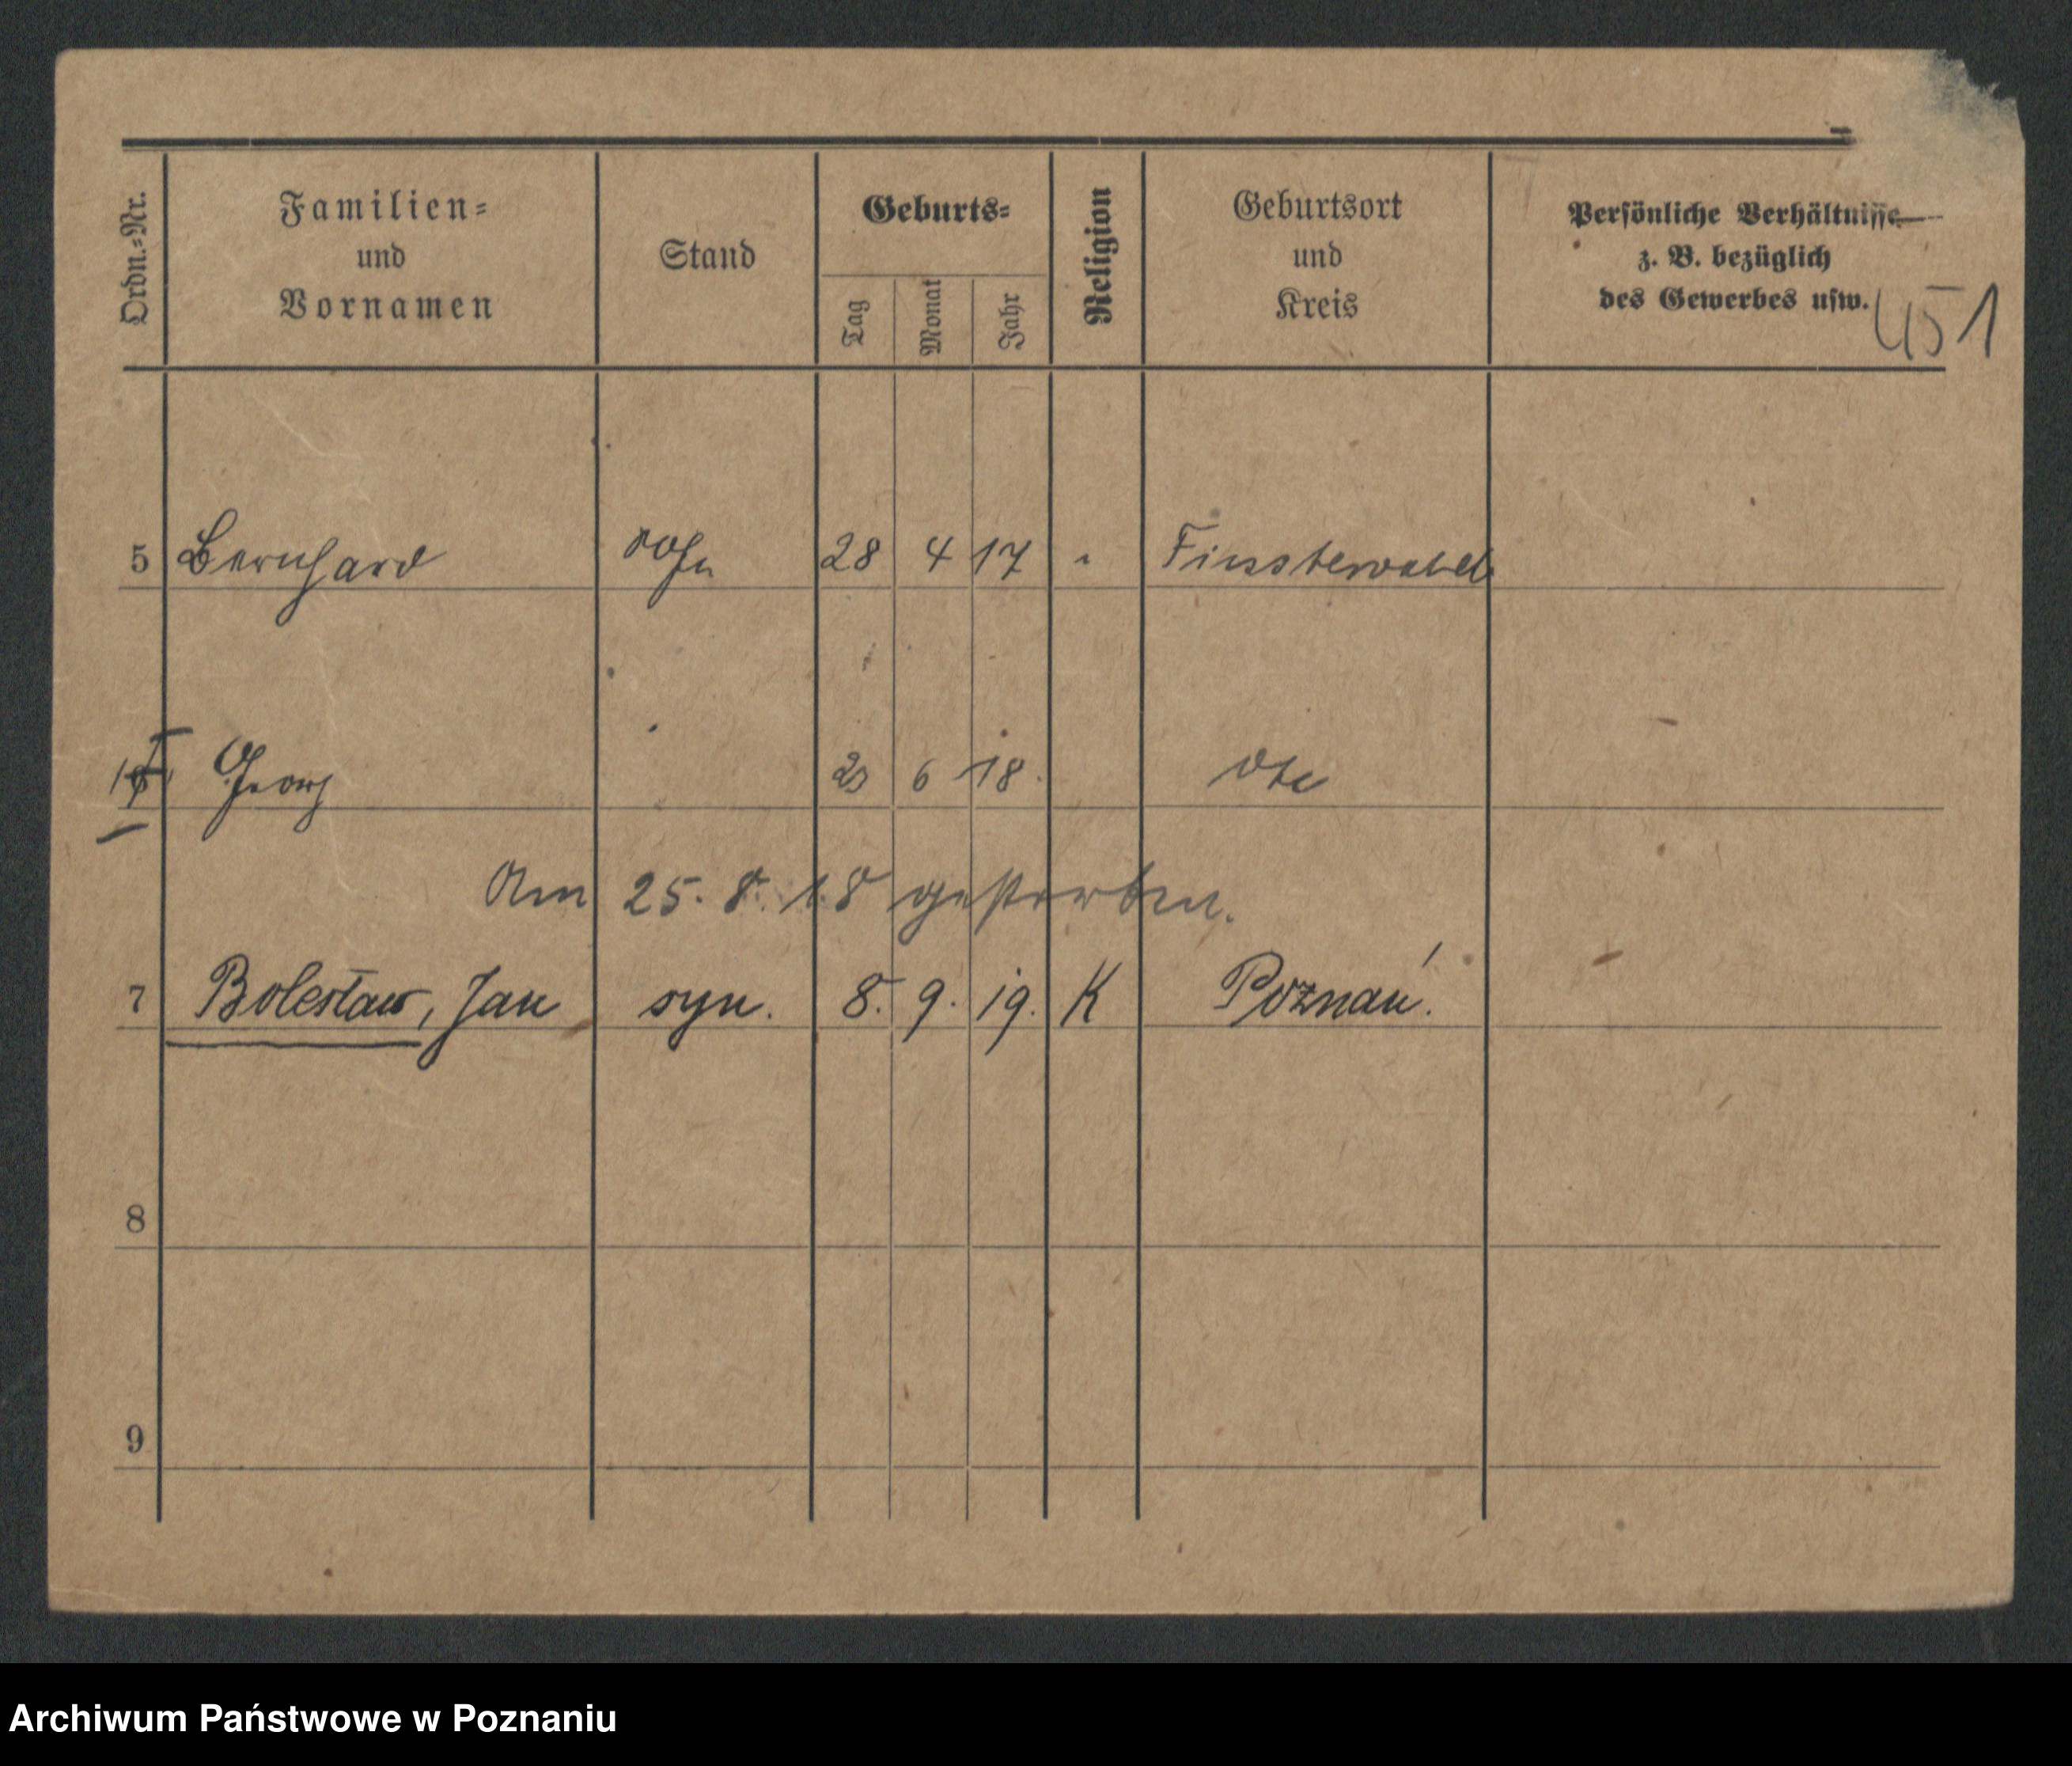 Ordn.=Nr.
Familien=
und
Vornamen
Stand
Geburts=
Tag
Monat
Jahr
Religion
Geburtsort
und
Kreis
Persönliche Verhältnisse
z. B. bezüglich
des Gewerbes usw.
451
5 Bernhard Sohn 28 4 17 " Finsterwalde
Georg 23 6 18. dto
Am 25. 8. 18 gestorben.
7 Bolesław, Jan syn. 8. 9. 19. K Poznań.
8
9
Archiwum Państwowe w Poznaniu